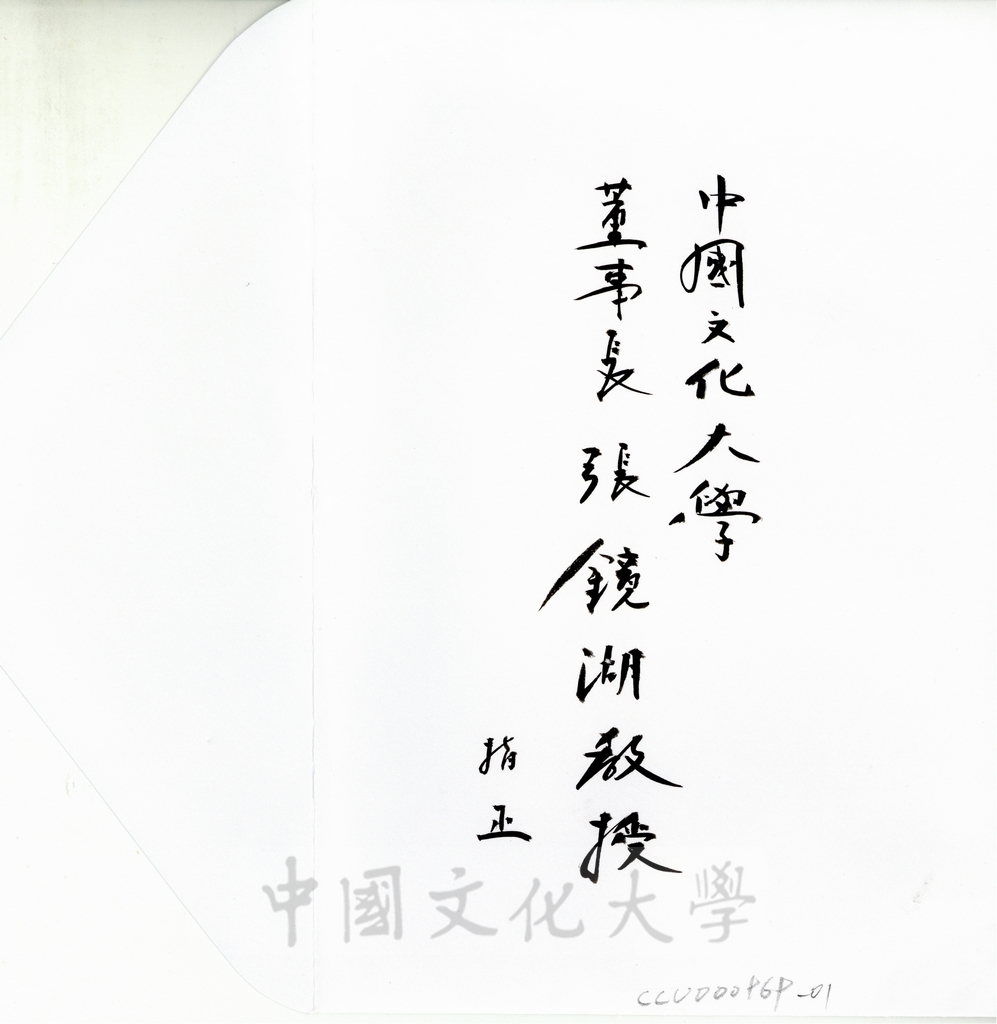 中國文化大學
董事長 張鏡湖教授
指正
中國文化大學